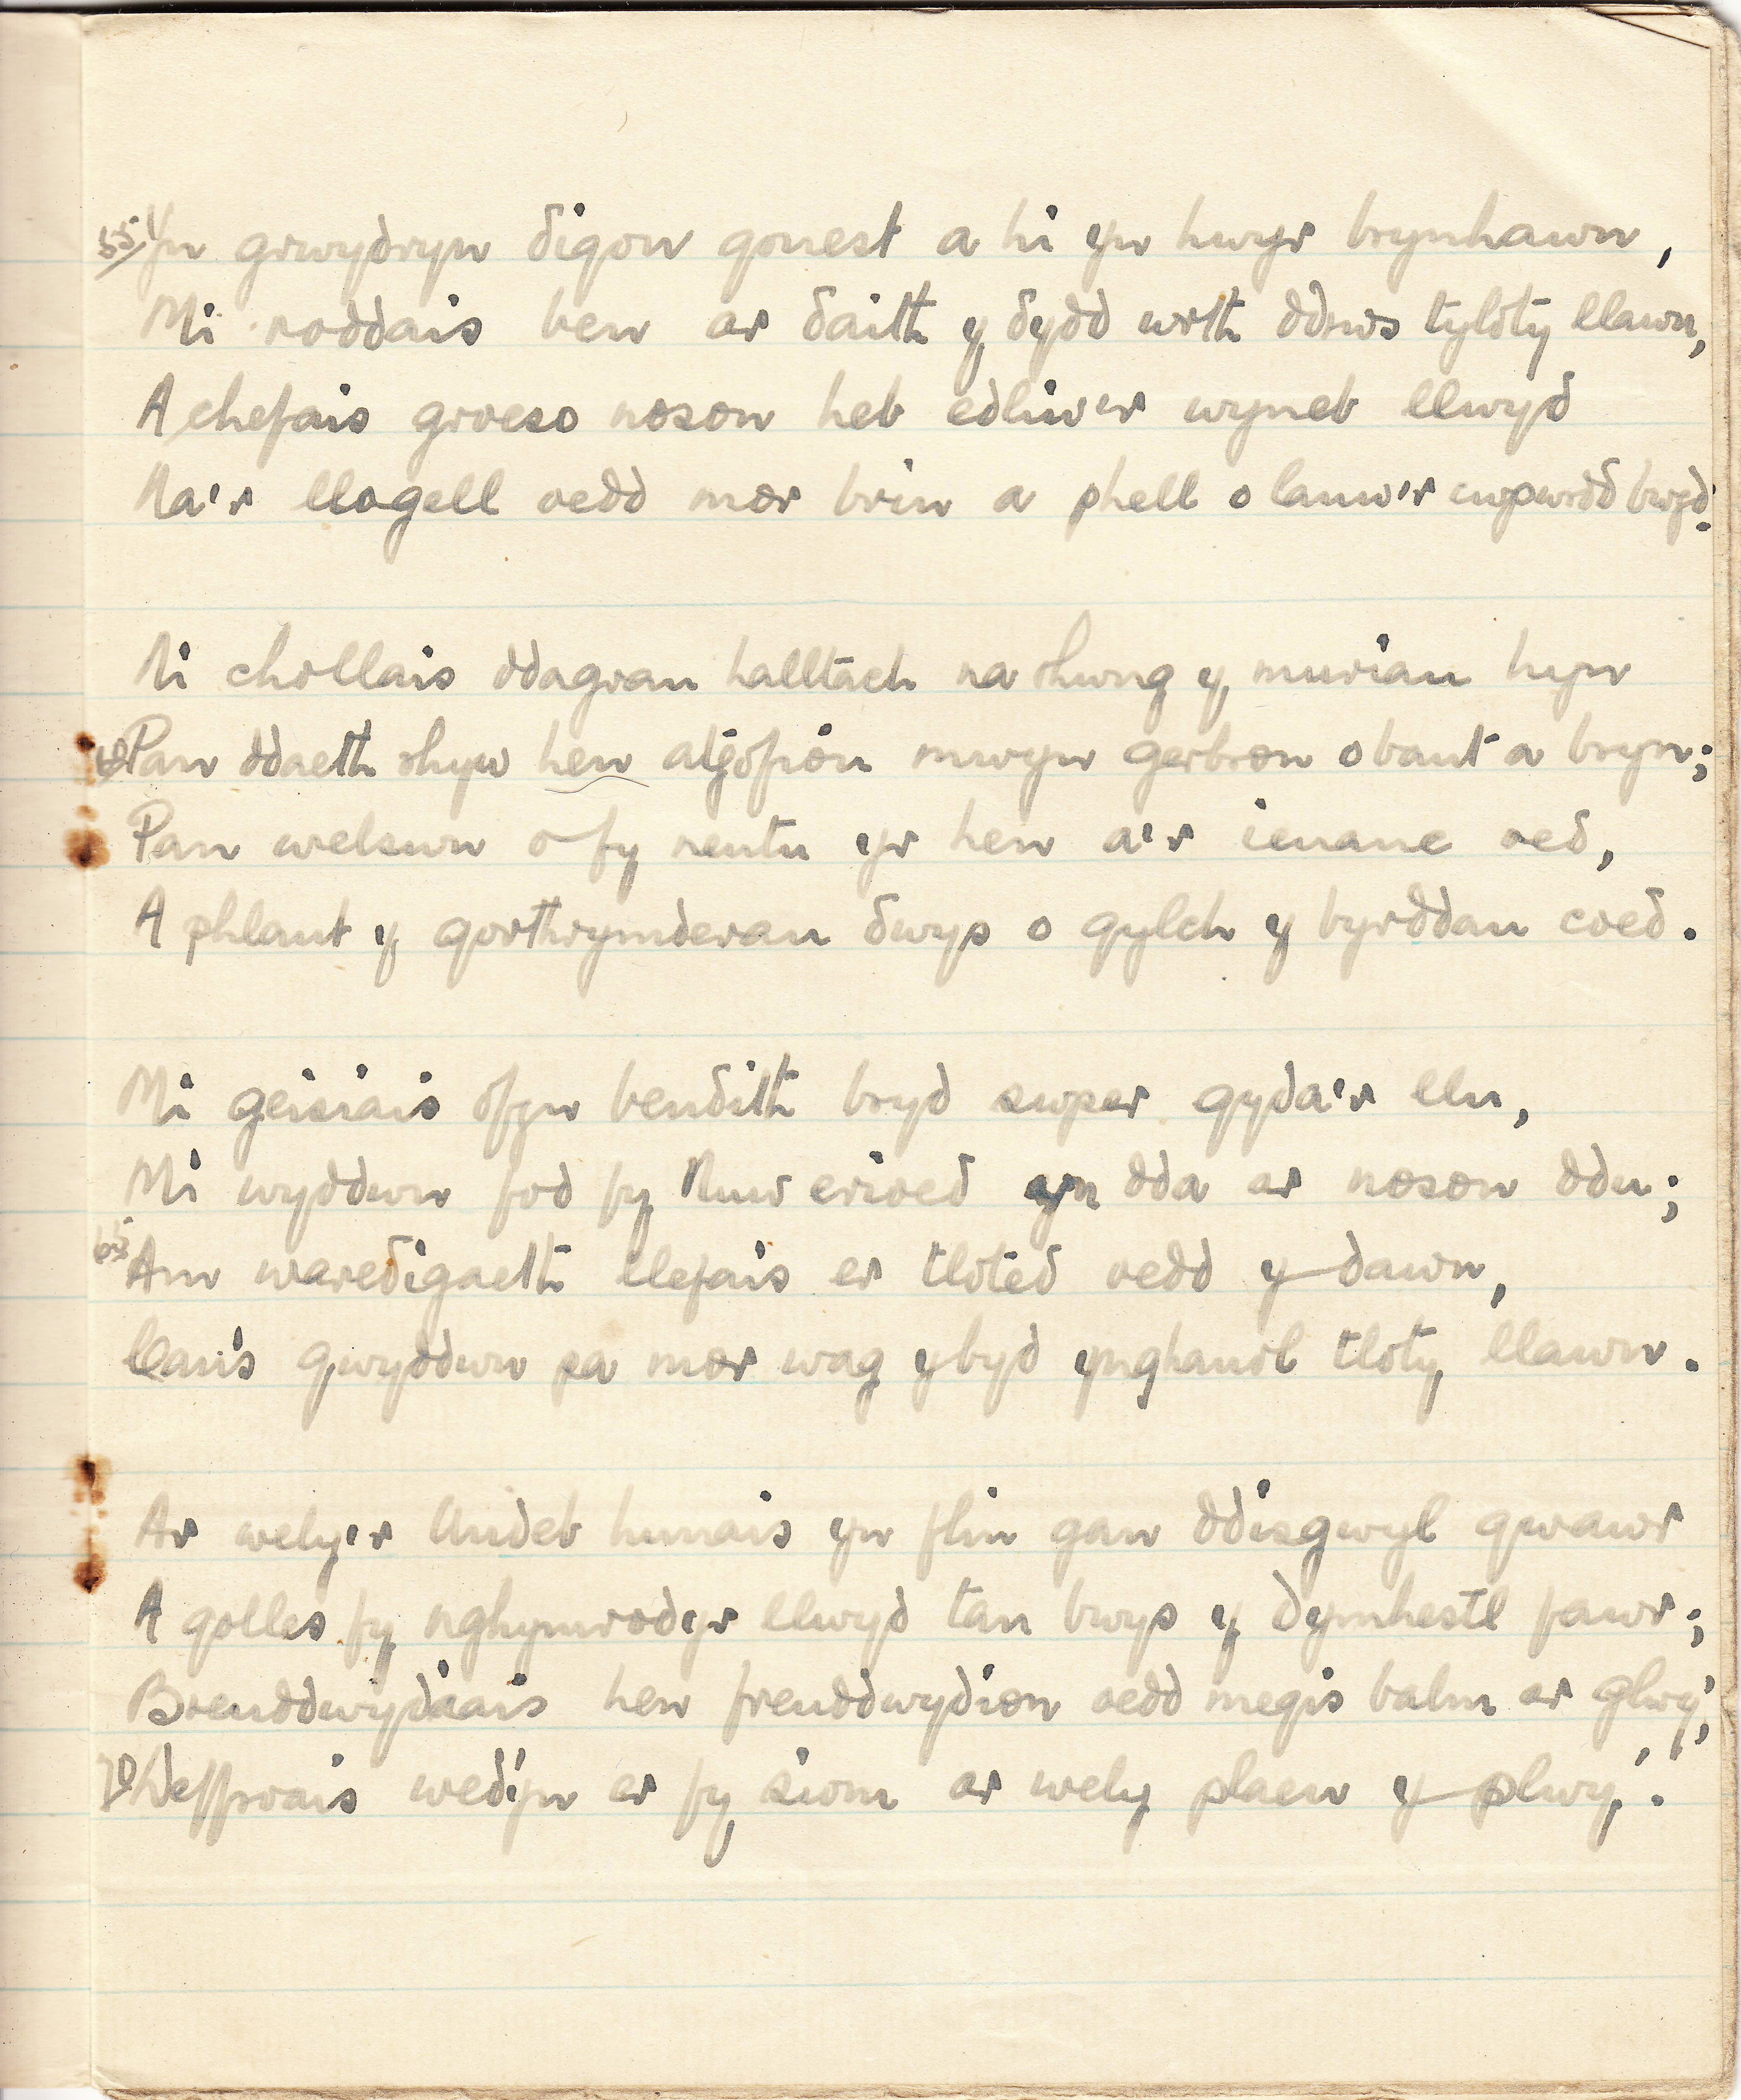 55 Yn grwydryn digon gonest a hi yn hwyr brynhawn,
Mi roddais ben ar daith y dydd wrth ddrws tyloty llawn,
A chefais groeso noson heb edliw'r wyneb llwyd
Na'r llogell oedd mor brin a phell o lanw'r cwpwrdd bwyd.
Ni chollais ddagrau halltach na rhwng y muriau hyn
60 Pan ddaeth rhyw hen atgofion mwyn gerbron o bant a bryn;
Pan welswn o fy neutu yr hen a'r ieuanc oed,
A phlant y gorthrymderau dwys o gylch y byrddau coed.
Mi geisiais ofyn bendith bryd swper gyda'r llu,
Mi wyddwn fod fy Nuw erioed yn dda ar noson ddu;
65 Am waredigaeth llefais er tloted oedd y dawn,
Canis gwyddwn pa mor wag y byd ynghanol tloty llawn.
Ar wely'r Undeb hunais yn flin gan ddisgwyl gwawr
A golles fy nghymrodyr llwyd tan bwys y dymhestl fawr;
Breuddwydiais hen freuddwydion oedd megis balm ar glwy';
70 Deffrois wedyn er fy siom ar wely plaen y plwy'.